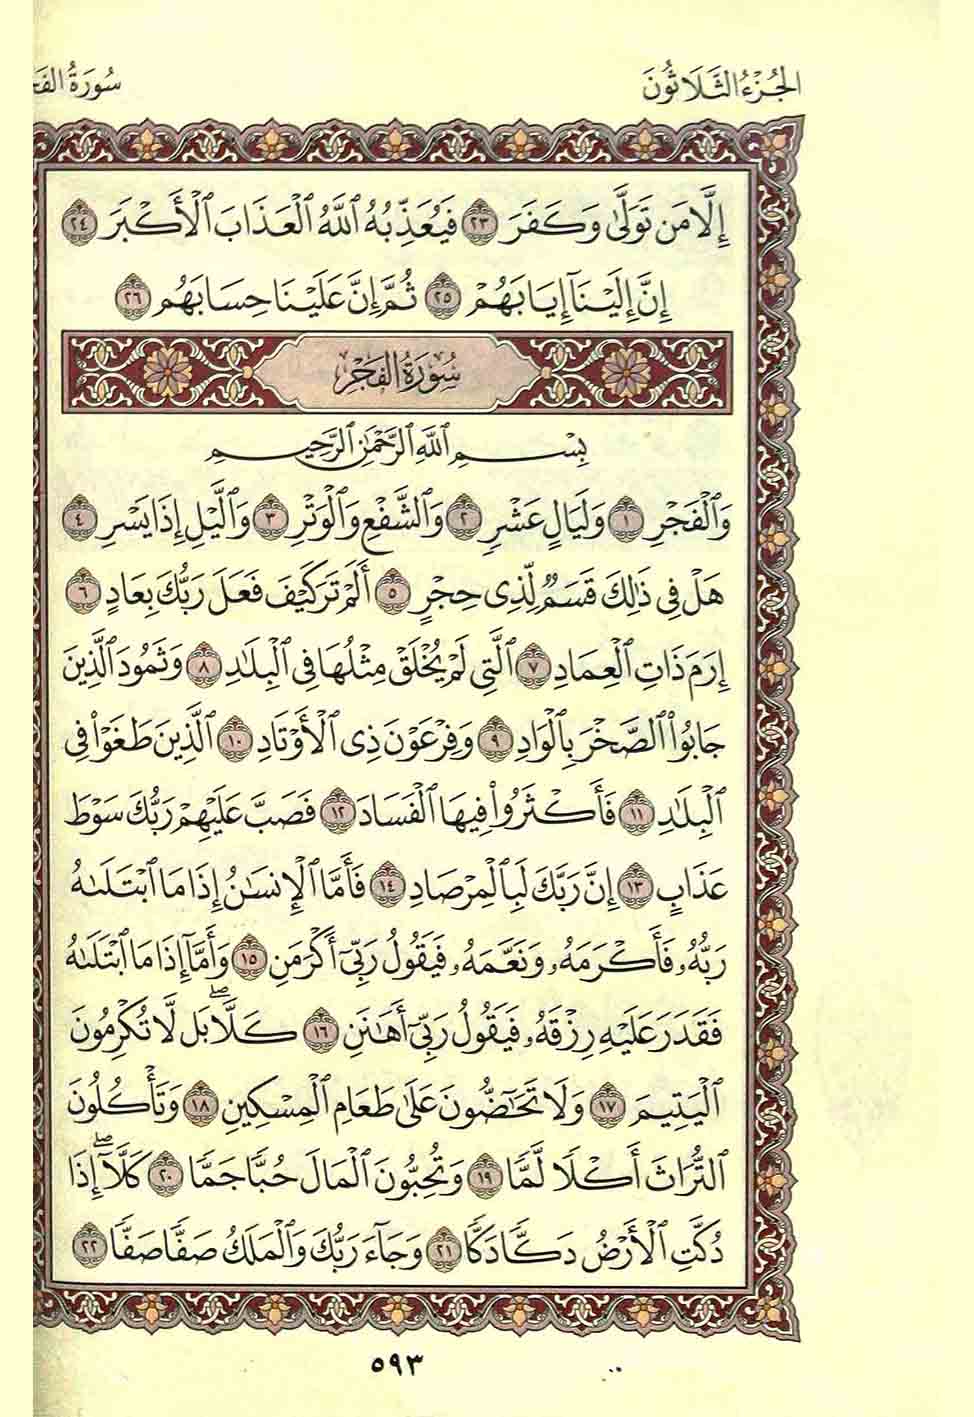 الجُزْءُ الثَّلَاثُونَ
سُورَةُ
إِلَّا مَن تَوَلَّىٰ وَكَفَرَ ٢٣ فَيُعَذِّبُهُ ٱللَّهُ ٱلْعَذَابَ ٱلْأَكْبَرَ ٢٤
إِنَّ إِلَيْنَآ إِيَابَهُمْ ٢٥ ثُمَّ إِنَّ عَلَيْنَا حِسَابَهُم ٢٦
سُورَةُ الفَجْرِ
بِسْمِ ٱللَّهِ ٱلرَّحْمَٰنِ ٱلرَّحِيمِ
وَٱلْفَجْرِ ١ وَلَيَالٍ عَشْرٍ ٢ وَٱلشَّفْعِ وَٱلْوَتْرِ ٣ وَٱلَّيْلِ إِذَا يَسْرِ ٤
هَلْ فِى ذَٰلِكَ قَسَمٌ لِّذِى حِجْرٍ ٥ أَلَمْ تَرَ كَيْفَ فَعَلَ رَبُّكَ بِعَادٍ ٦
إِرَمَ ذَاتِ ٱلْعِمَادِ ٧ ٱلَّتِى لَمْ يُخْلَقْ مِثْلُهَا فِى ٱلْبِلَٰدِ ٨ وَثَمُودَ ٱلَّذِينَ
جَابُوا۟ ٱلصَّخْرَ بِٱلْوَادِ ٩ وَفِرْعَوْنَ ذِى ٱلْأَوْتَادِ ١٠ ٱلَّذِينَ طَغَوْا۟ فِى
ٱلْبِلَٰدِ ١١ فَأَكْثَرُوا۟ فِيهَا ٱلْفَسَادَ ١٢ فَصَبَّ عَلَيْهِمْ رَبُّكَ سَوْطَ
عَذَابٍ ١٣ إِنَّ رَبَّكَ لَبِٱلْمِرْصَادِ ١٤ فَأَمَّا ٱلْإِنسَٰنُ إِذَا مَا ٱبْتَلَىٰهُ
رَبُّهُۥ فَأَكْرَمَهُۥ وَنَعَّمَهُۥ فَيَقُولُ رَبِّىٓ أَكْرَمَنِ ١٥ وَأَمَّآ إِذَا مَا ٱبْتَلَىٰهُ
فَقَدَرَ عَلَيْهِ رِزْقَهُۥ فَيَقُولُ رَبِّىٓ أَهَٰنَنِ ١٦ كَلَّاۖ بَل لَّا تُكْرِمُونَ
ٱلْيَتِيمَ ١٧ وَلَا تَحَٰٓضُّونَ عَلَىٰ طَعَامِ ٱلْمِسْكِينِ ١٨ وَتَأْكُلُونَ
ٱلتُّرَاثَ أَكْلًا لَّمًّا ١٩ وَتُحِبُّونَ ٱلْمَالَ حُبًّا جَمًّا ٢٠ كَلَّآۖ إِذَا
دُكَّتِ ٱلْأَرْضُ دَكًّا دَكًّا ٢١ وَجَآءَ رَبُّكَ وَٱلْمَلَكُ صَفًّا صَفًّا ٢٢
٥٩٣